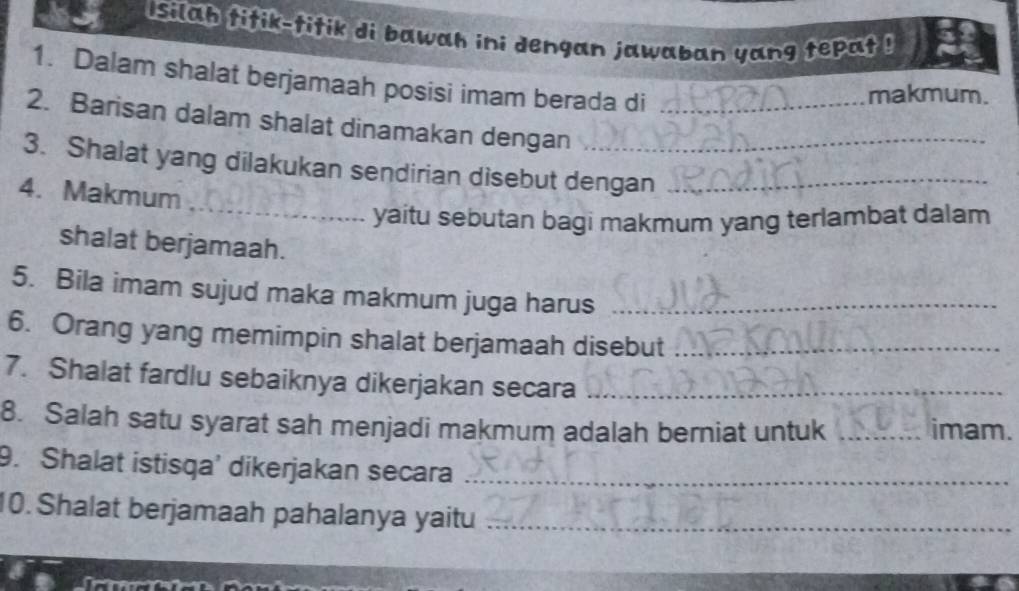 Isilah titik-titik di bawah ini dengan jawaban yang tepat !
1. Dalam shalat berjamaah posisi imam berada di depan makmum.
2. Barisan dalam shalat dinamakan dengan
3. Shalat yang dilakukan sendirian disebut dengan sendiri
4. Makmum , yaitu sebutan bagi makmum yang terlambat dalam
shalat berjamaah.
5. Bila imam sujud maka makmum juga harus sujud
6. Orang yang memimpin shalat berjamaah disebut makmum
7. Shalat fardlu sebaiknya dikerjakan secara berjamaah
8. Salah satu syarat sah menjadi makmum adalah berniat untuk imam.
9. Shalat istisqa' dikerjakan secara sendiri
10. Shalat berjamaah pahalanya yaitu 27